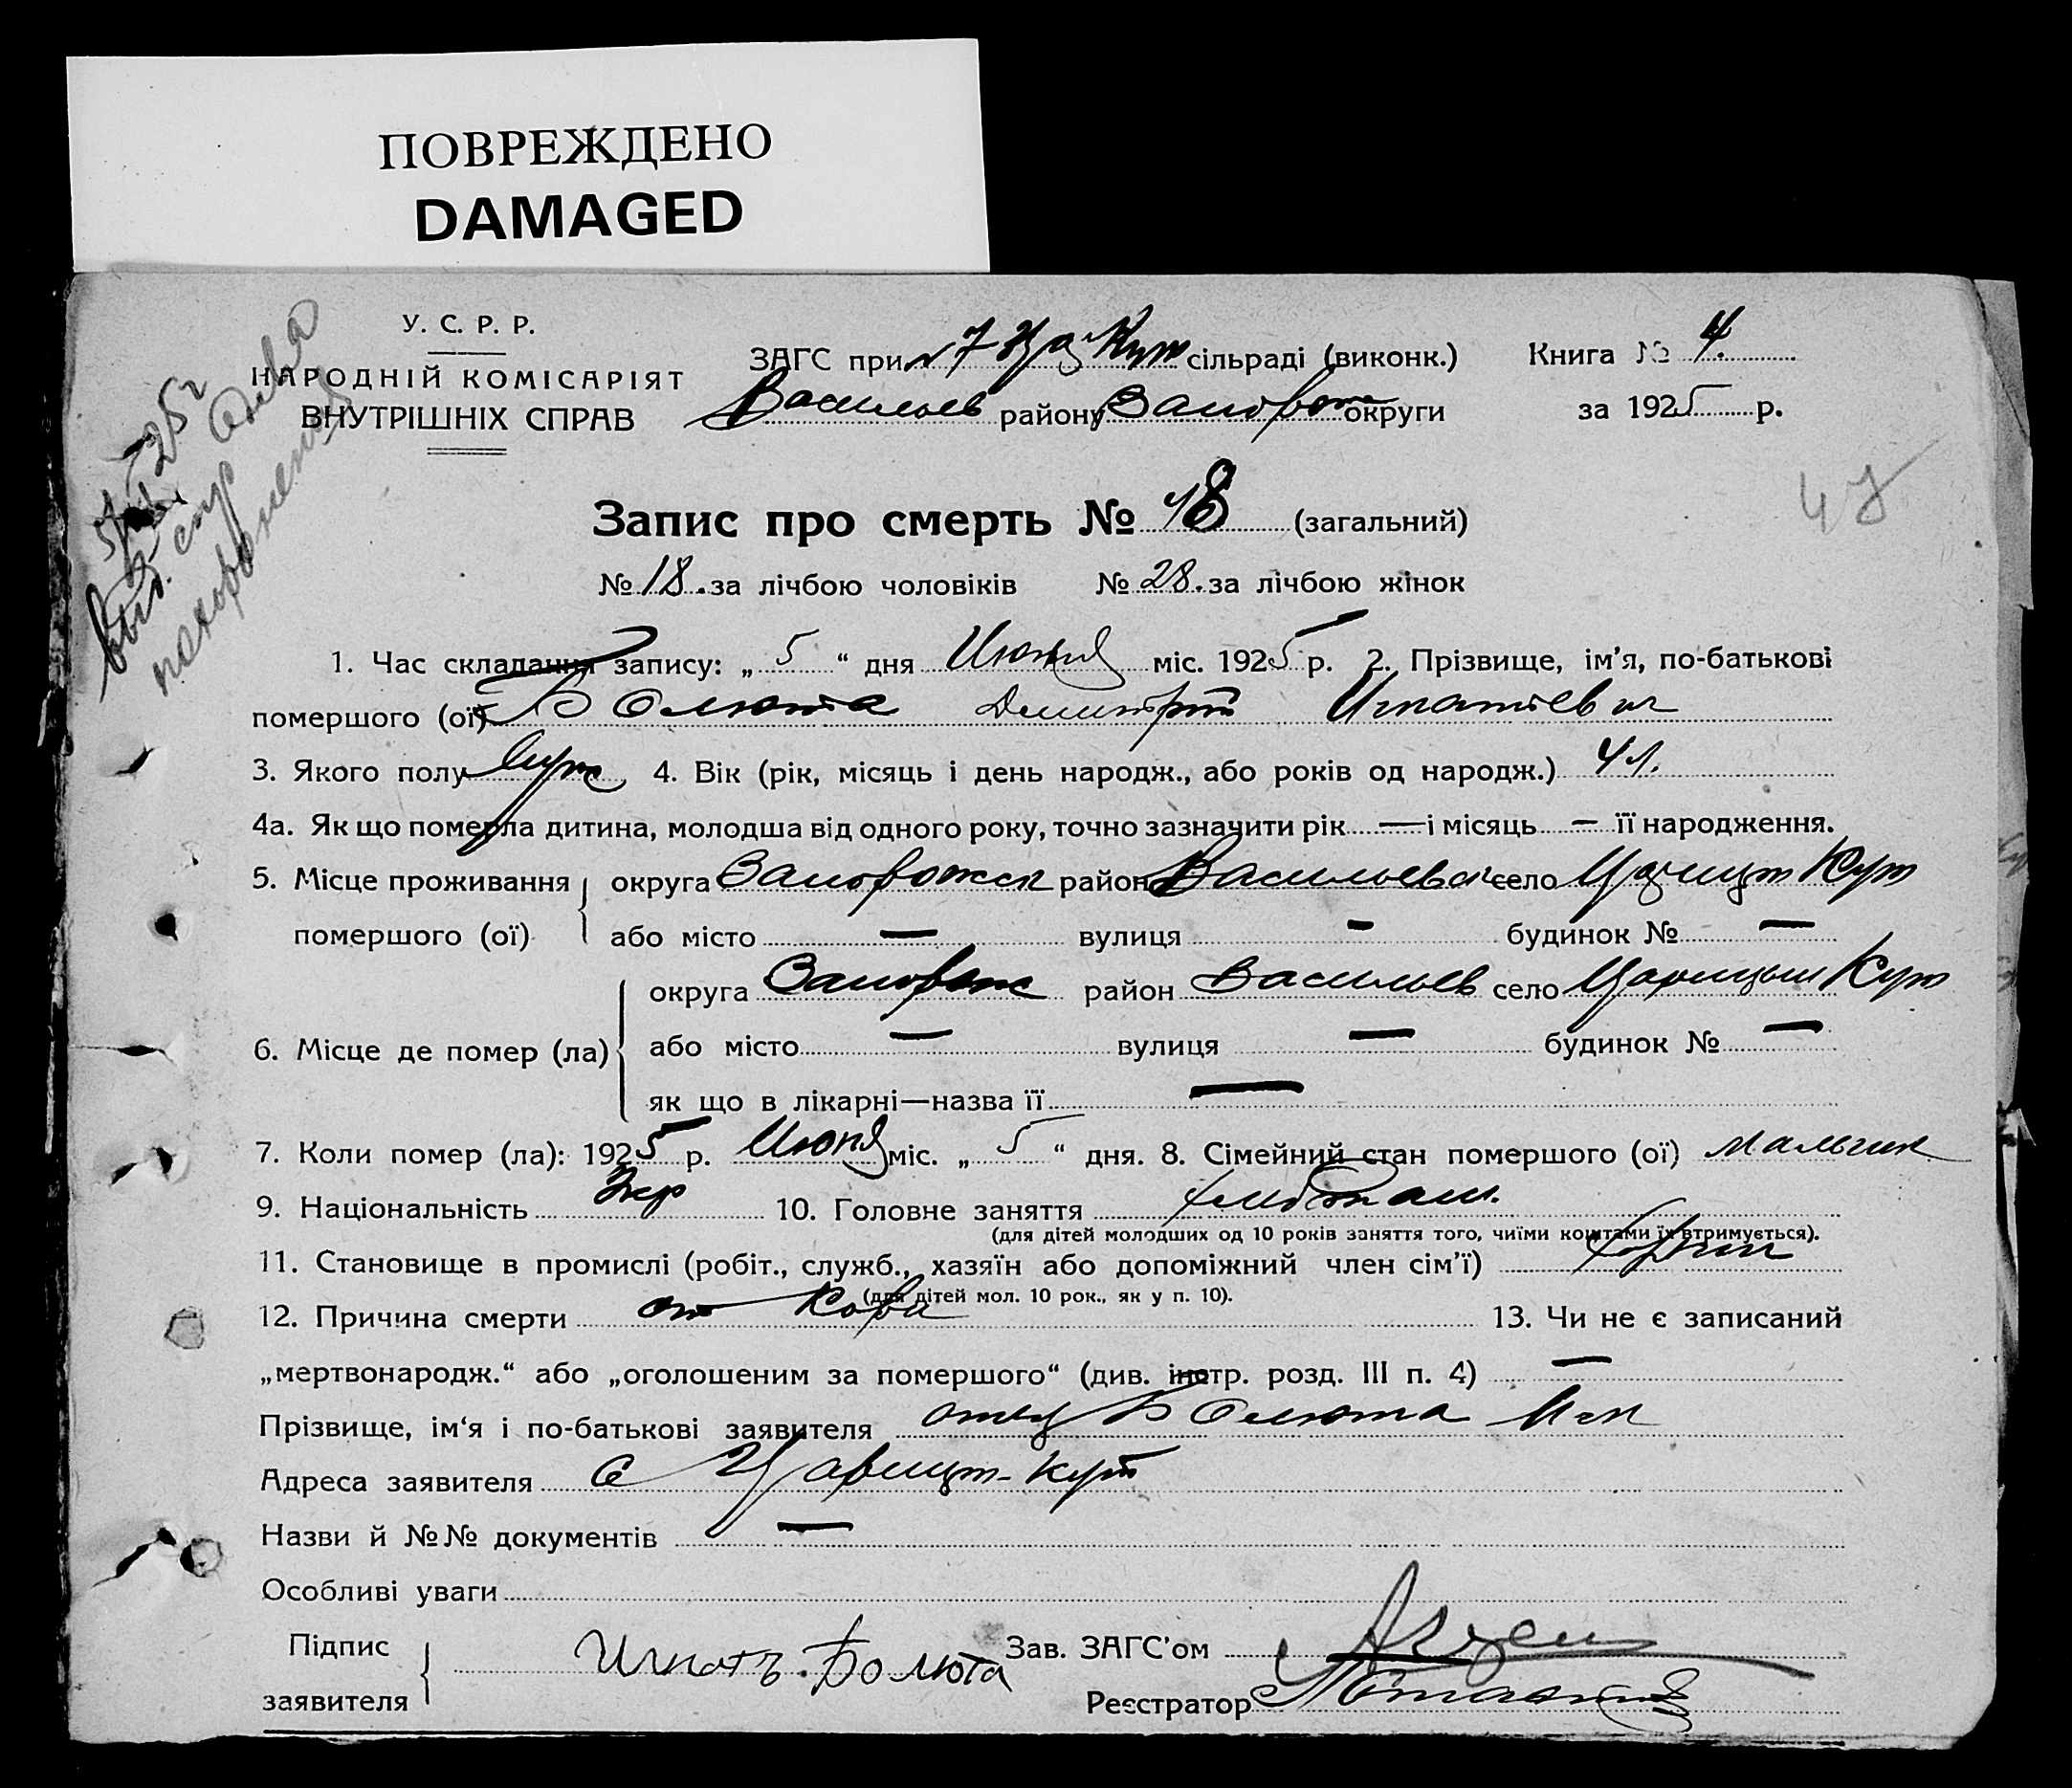 ПОВРЕЖДЕНО
DAMAGED
У. С. Р. Р.
НАРОДНІЙ КОМІСАРІЯТ
ВНУТРІШНІХ СПРАВ
ЗАГС при Кут сільраді (виконк.)
Васильев району Запорож округи
Книга № 4.
за 1925 р.
похоронения
47
Запис про смерть № 48 (загальний)
№ 18. за лічбою чоловіків № 28. за лічбою жінок
1. Час складання запису: „ 5 “ дня Июня міс. 1925 р. 2. Прізвище, ім’я, по-батькові
помершого (ої) Болюта Дмитрий Игнатьевич
3. Якого полу 4. Вік (рік, місяць і день народж., або років од народж.) 4 л.
4а. Як що померла дитина, молодша від одного року, точно зазначити рік — і місяць — її народження.
5. Місце проживання помершого (ої) округа Запорожск район Васильевск село Царицын Кут
або місто — вулиця — будинок № —
6. Місце де помер (ла) округа Запорож район Васильев село Царицын Кут
або місто — вулиця — будинок № —
як що в лікарні—назва її —
7. Коли помер (ла): 1925 р. Июня міс. „ 5 “ дня. 8. Сімейний стан помершого (ої) мальчик
9. Національність Укр 10. Головне заняття хлебопаш.
(для дітей молодших од 10 років заняття того, чиїми коштами їх втримується).
11. Становище в промислі (робіт., служб., хазяїн або допоміжний член сім’ї)
(для дітей мол. 10 рок., як у п. 10).
12. Причина смерти от Кора 13. Чи не є записаний
„мертвонародж.“ або „оголошеним за помершого“ (див. інстр. розд. III п. 4) —
Прізвище, ім‘я і по-батькові заявителя отец Болюта Игн
Адреса заявителя с Царицын-Кут
Назви й №№ документів —
Особливі уваги
Підпис заявителя Игнатъ. Болюта
Зав. ЗАГС’ом
Реєстратор